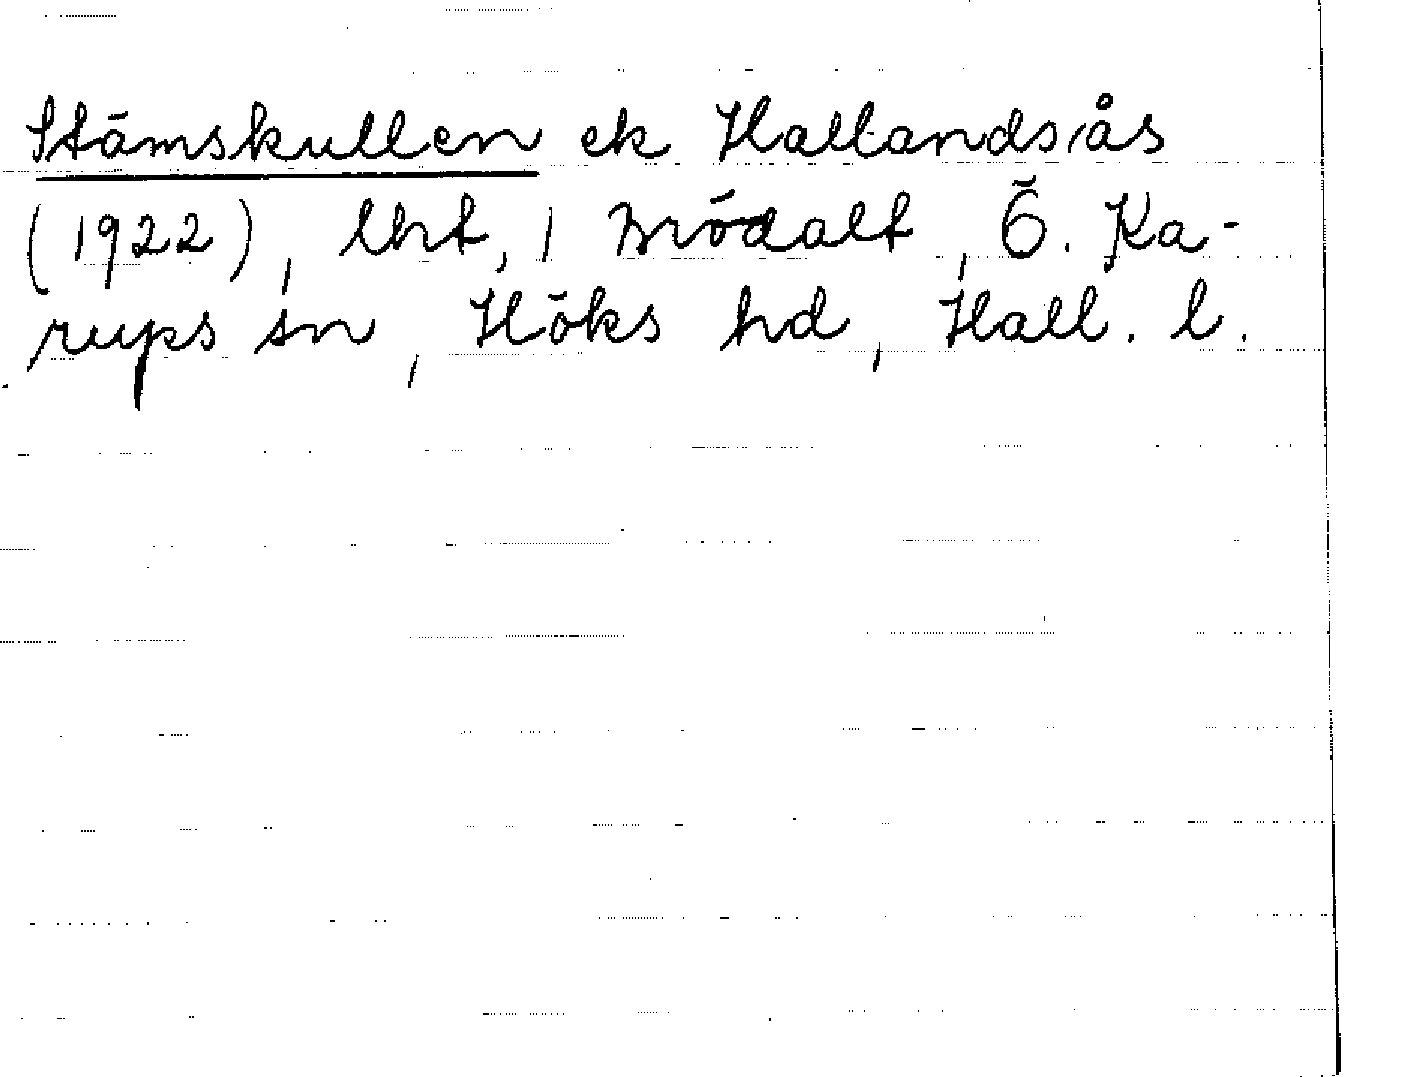 Stämskullen ek Hallandsås
(1922), lht, 1 Brödalt, Ö. Ka-
rups sn, Höks hd, Hall. l.